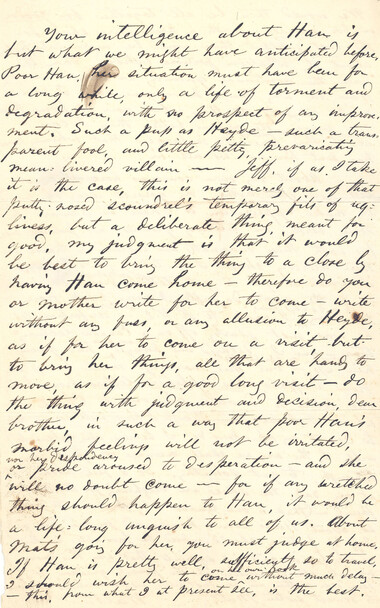 Your intelligence about Han is
but what we might have anticipated before,
Poor Han, her situation must have been for
a long while, only a life of torment and
degradation, with no prospect of any improve-
ment. Such a pup as Heyde — such a trans-
parent fool, and little petty, prevaricating
mean-livered villain —— Jeff, if as I take
it is the case, this is not merely one of that
putty-nosed scoundrel's temporary fits of ug-
liness, but a deliberate thing, meant for
good, my judgment is that it would
be best to bring the thing to a close by
having Han come home — therefore do you
or mother write for her to come — write
without any fuss, or any allusion to Heyde,
as if for her to come on a visit but
to bring her things, all that are handy to
move, as if for a good long visit — do
the thing with judgment and decision, dear
brother, in such a way that poor Han's
morbid feelings will not be irritated,
nor her despondency
or pride aroused to desperation — and she
will no doubt come — for if any wretched
thing should happen to Han, it would be
a life-long anguish to all of us. About
Mat's going for her, you must judge at home.
If Han is pretty well, sufficiently so to travel,
on all own hook
I should wish her to come without much delay —
— this, from what I at present see, is the best.